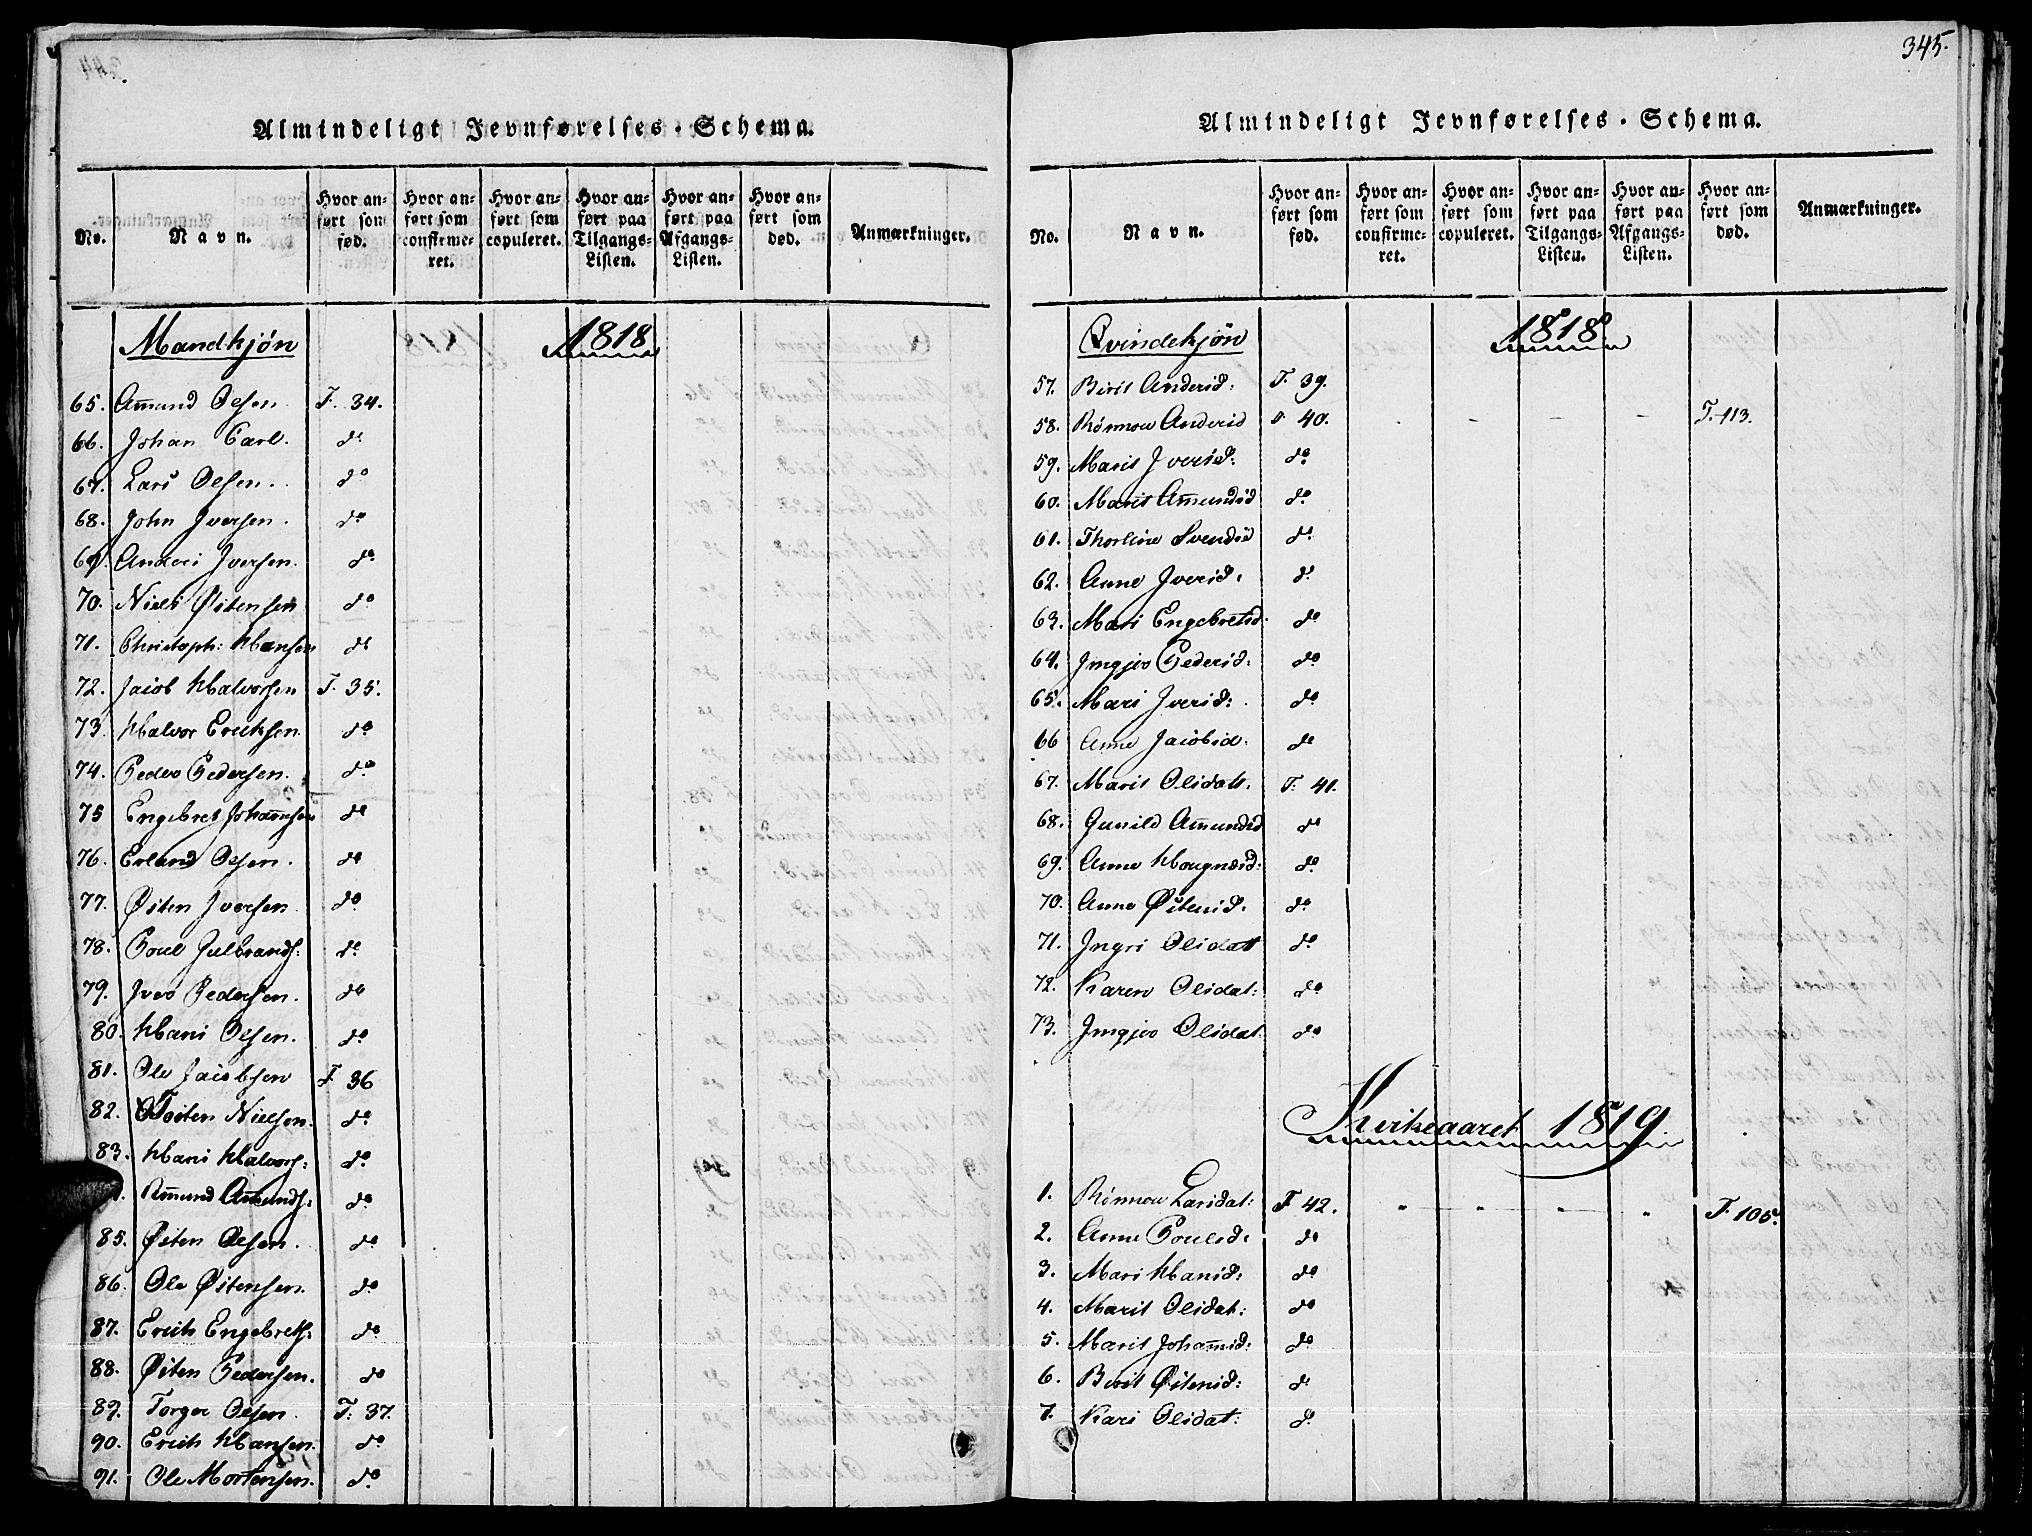 Almindeligt Jevnførelses-Schema.
No.
Navn.
Hvor anført som fød.
Hvor anført som confirmeret.
Hvor anført som copuleret.
Hvor anført paa Tilgangs-Listen.
Hvor anført paa Afgangs-Listen.
Hvor anført som død.
Anmærkninger.
Mandkjøn 1818
65. Amund Olsen T. 34.
66. Johan Carl. do
67. Lars Olsen. do
68. John Iversen. do
69. Anders Iversen. do
70. Niels Østensen do
71. Christoph: Hansen do
72. Jacob Halvorsen T. 35.
73. Halvor Ericksen. do
74. Peder Pedersen. do
75 Engebret Johannsen do
76. Erland Olsen. do
77. Østen Iversen do
78. Poul Gulbrands: do
79. Iver Pedersen. do
80. Hans Olsen. do
81. Ole Jacobsen T. 36
82. Tosten Nielsen. do
83. Hans Halvors: do
Amund Amunds: do
85. Østen Olsen. do
86. Ole Østensen. do
87. Erich Engebrets: do
88. Østen Pedersen. do
89. Torger Olsen. T. 37.
90. Erich Hansen. do
91. Ole Mortensen. do
345.
Almindeligt Jevnførelses-Schema.
No.
Navn.
Hvor anført som fød.
Hvor anført som confirmeret.
Hvor anført som copuleret.
Hvor anført paa Tilgangs-Listen.
Hvor anført paa Afgangs-Listen.
Hvor anført som død.
Anmærkninger.
Qvindekjøn 1818
57. Berit Andersd: T. 39.
58. Rønnow Andersd T 40. T. 113.
59. Marit Iversd: do
60. Marit Amundsd do
61. Thorline Svendsd do
62. Anne Iversd. do
63. Mari Engebretsd. do
64. Ingjer Pedersd. do
65. Mari Iversd: do
66 Anne Jacobsd. do
67. Marit Olsdatt. T. 41.
68. Gunild Amundsd do
69. Anne Haugnæsd: do
70. Anne Østensd. do
71. Ingri Olsdatt do
72. Karen Olsdat: do
73. Ingjer Olsdat do
Kirkeaaret 1819
1. Rønnow Larsdat: T 42. " " " " T. 105.
2. Anne Poulsd: do
3. Mari Hansd: do
4. Marit Olsdat: do
5. Marit Johannsd: do
6. Berit Østensd: do
7. Kari Olsdat: do